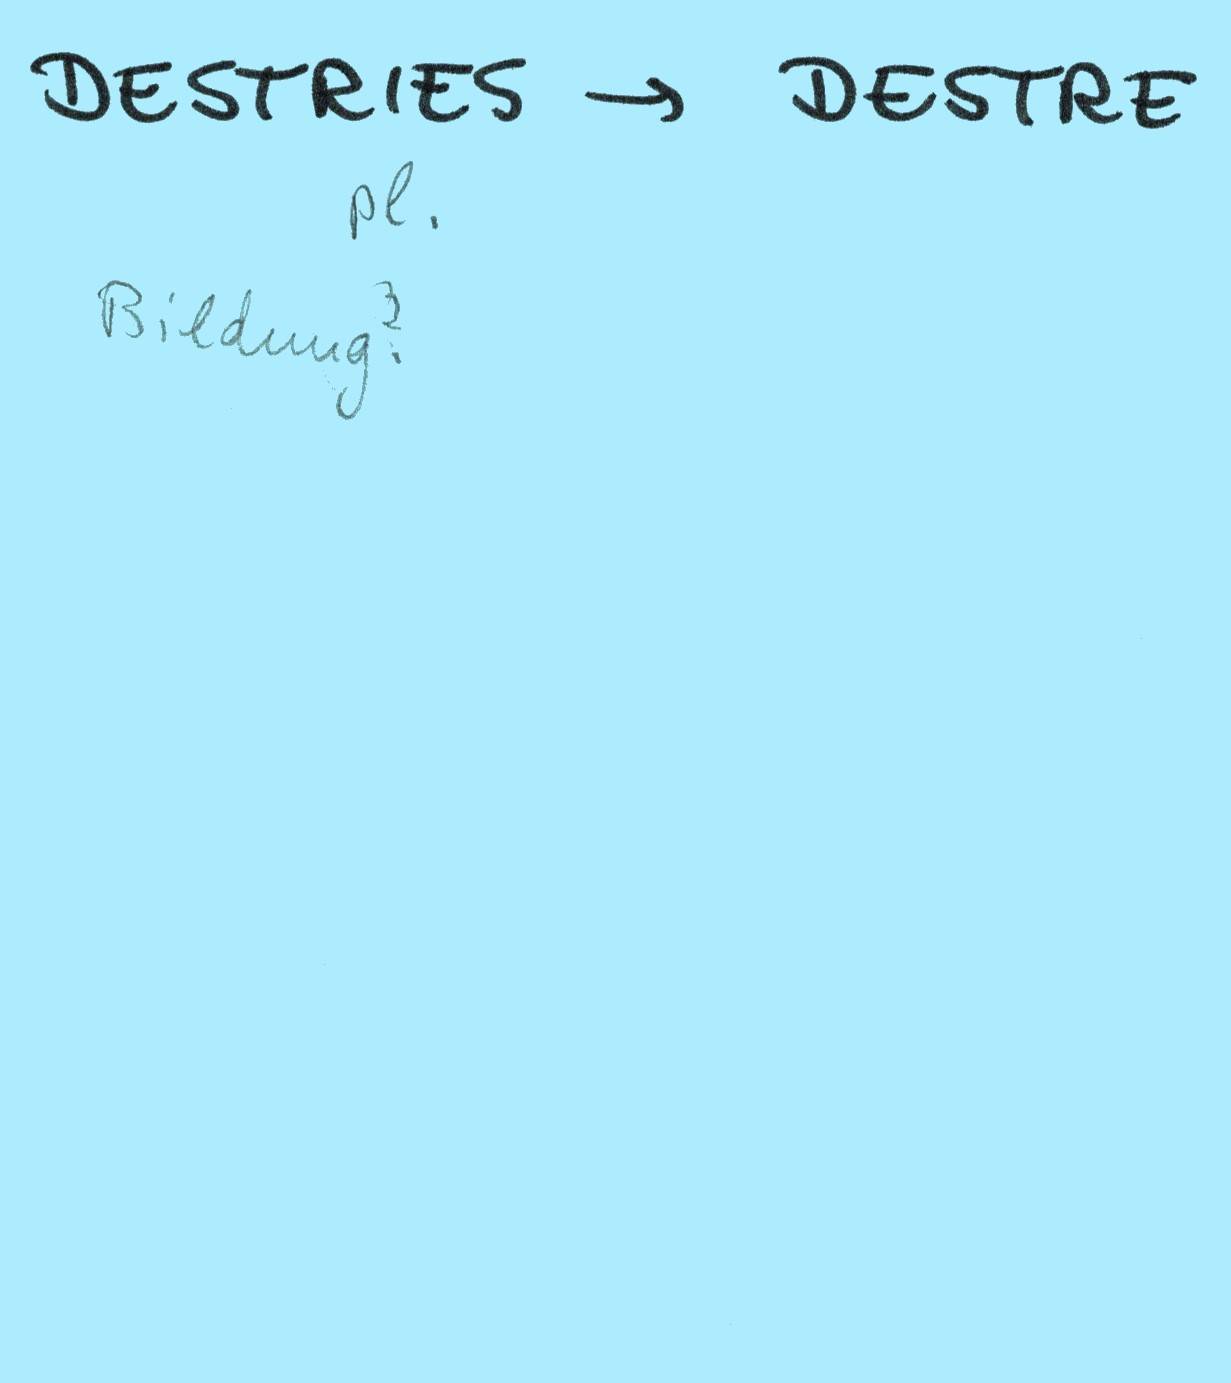 DESTRIES → DESTRE
pl.
Bildung?